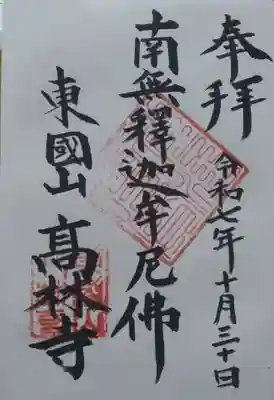 奉拜
令和七年十月三十日
南無釋迦牟尼佛
東國山 髙林寺